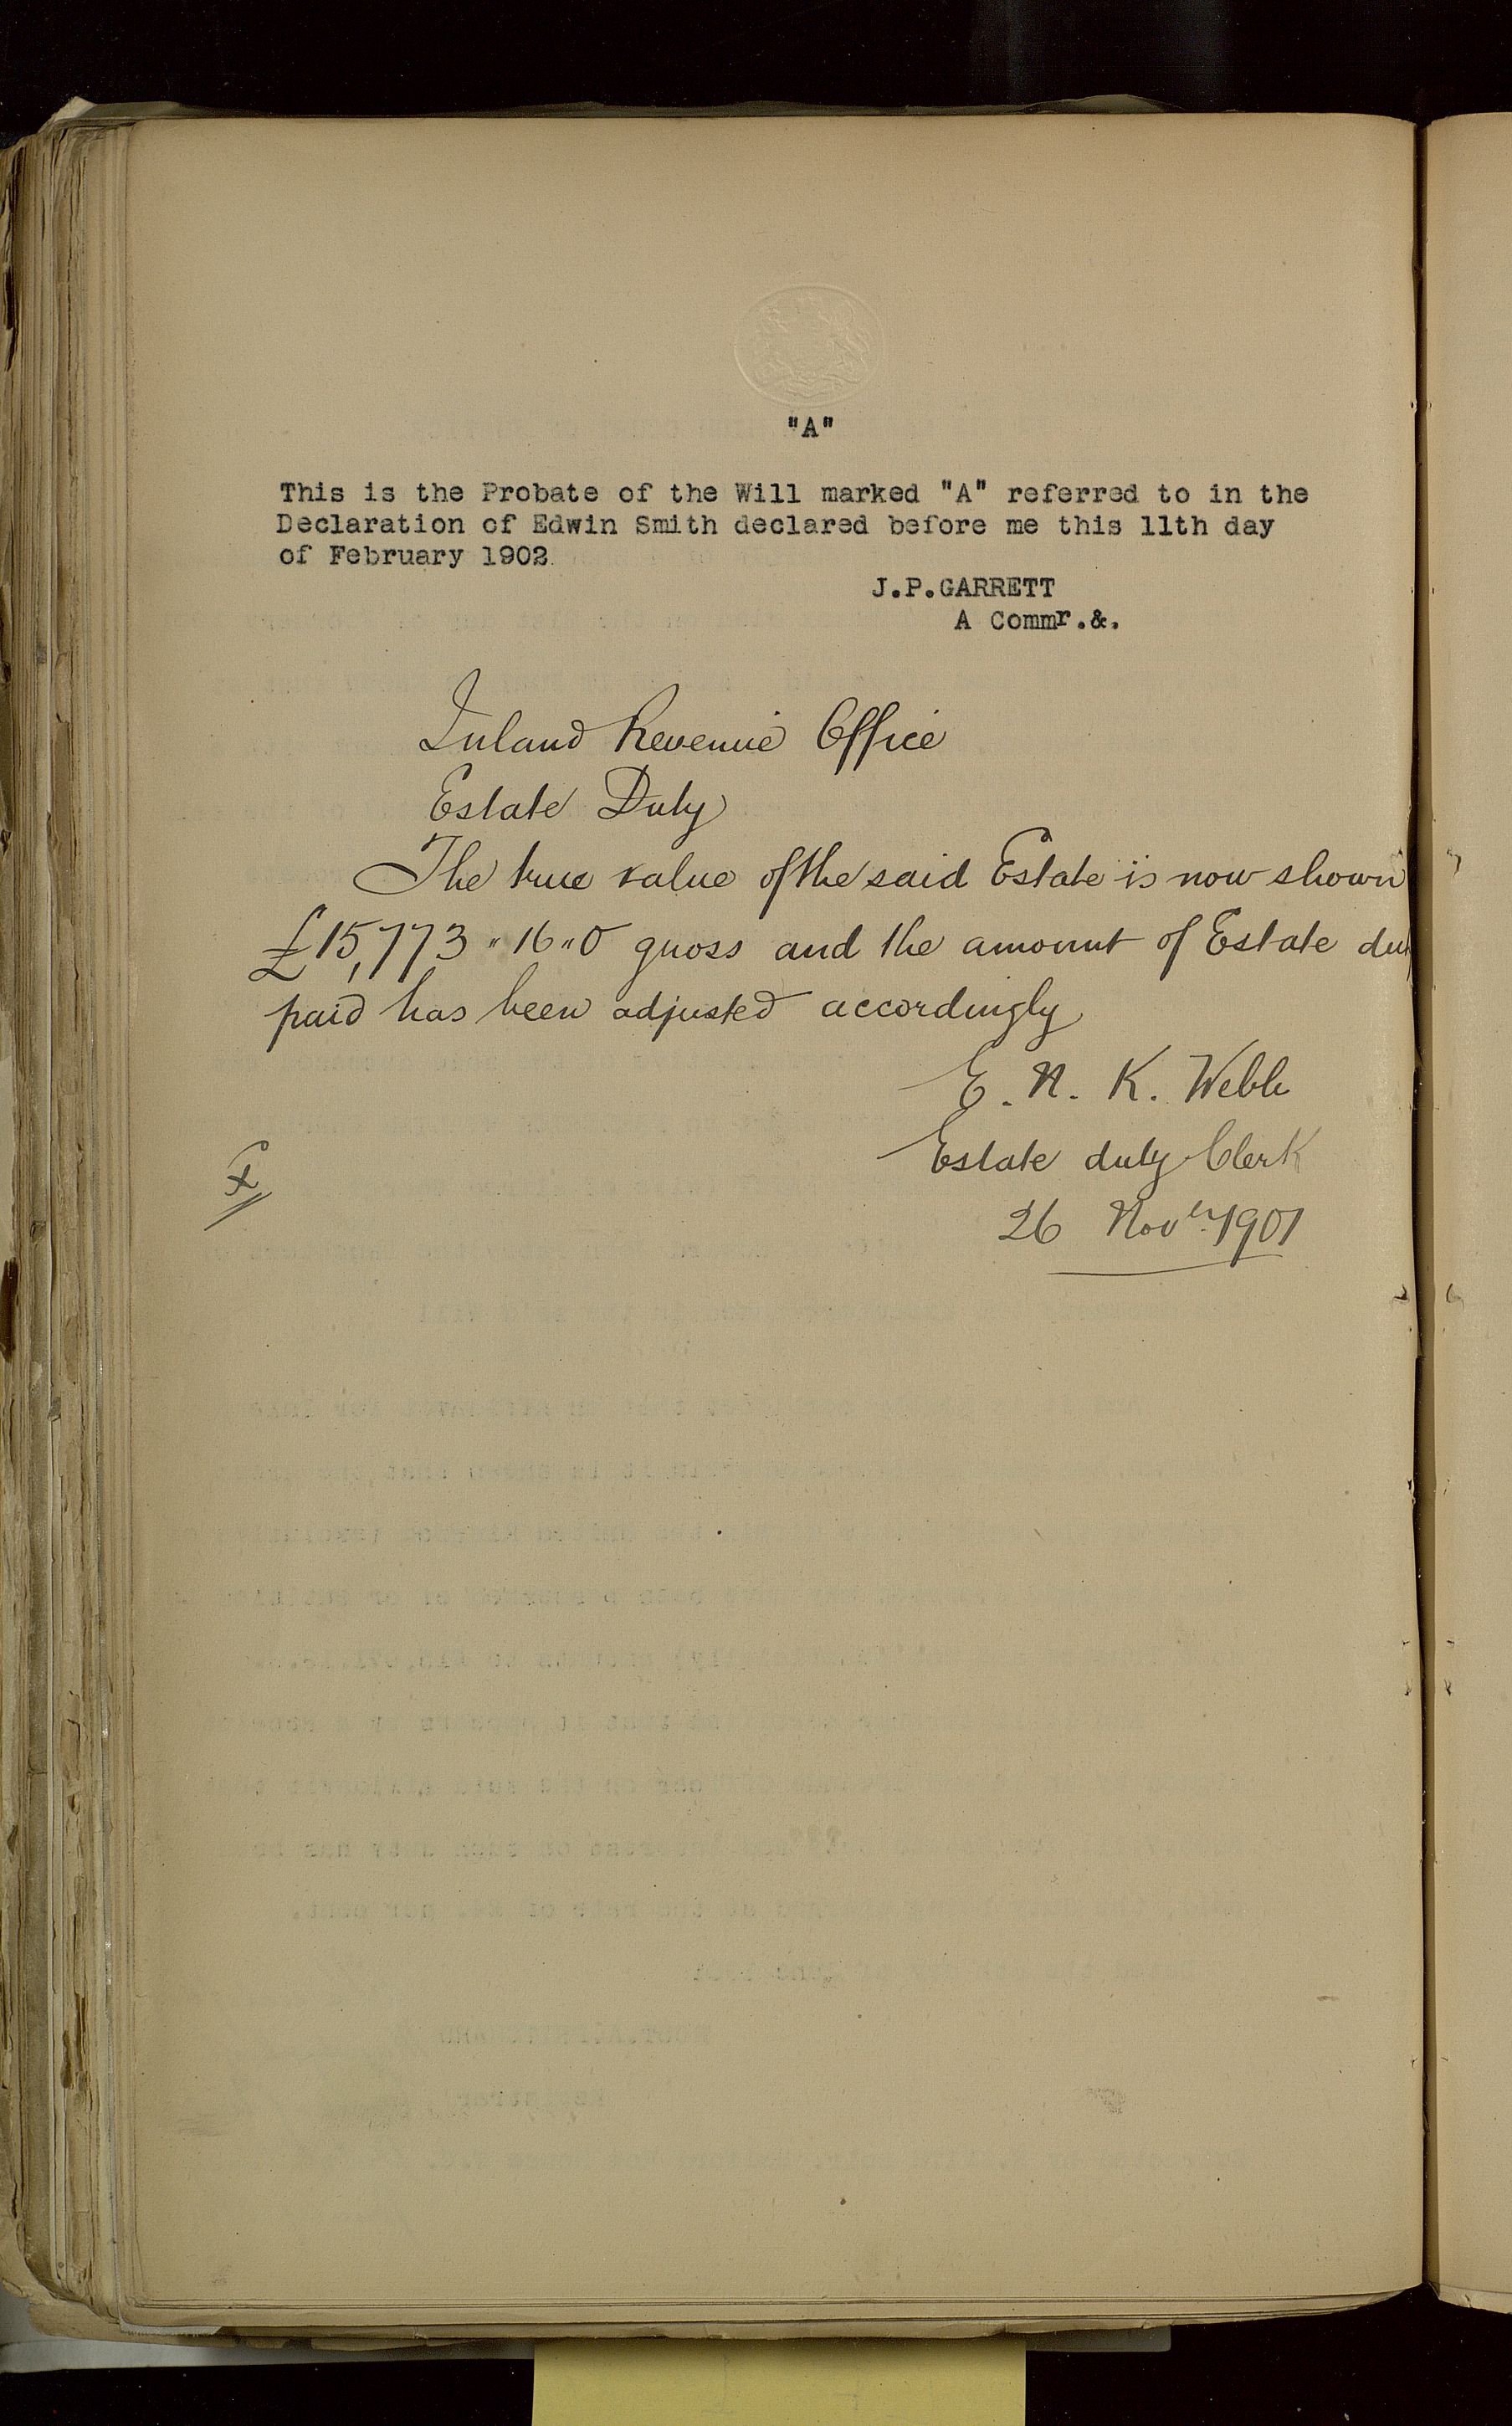 "A"
This is the Probate of the Will marked "A" referred to in the
Declaration of Edwin Smith declared before me this 11th day
of February 1902
J.P.GARRETT
A Commr.&.
Inland Revenue Office
Estate Duty
The true value of the said Estate is now shown
£15,773 " 16 " 0 gross and the amount of Estate du
paid has been adjusted accordingly
E. N. K. Webb
Estate duty Clerk
26 Novr. 1901